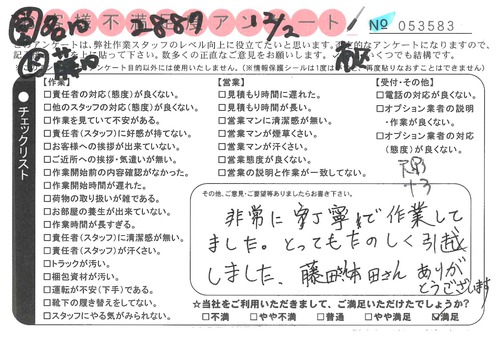 お客様不満足度アンケート
2887
12/2
№ 053583
このアンケートは、弊社作業スタッフのレベル向上に役立てたいと思います。
チェックリスト
【作業】
□責任者の対応(態度)が良くない。
□他のスタッフの対応(態度)が良くない。
□作業を見ていて不安がある。
□責任者(スタッフ)に好感が持てない。
□お客様への挨拶が出来ていない。
□ご近所への挨拶・気遣いが無い。
□作業開始前の内容確認がなかった。
□作業開始時間が遅れた。
□荷物の取り扱いが雑である。
□お部屋の養生が出来ていない。
□作業時間が長すぎる。
□責任者(スタッフ)に清潔感が無い。
□責任者(スタッフ)が汗くさい。
□トラックが汚い。
□梱包資材が汚い。
□運転が不安(下手)である。
□靴下の履き替えをしてない。
□スタッフにやる気がみられない。
【営業】
□見積もり時間に遅れた。
□見積もり時間が長い。
□営業マンに清潔感が無い。
□営業マンが煙草くさい。
□営業マンが汗くさい。
□営業態度が良くない。
□営業の説明と作業が一致してない。
【受付・その他】
□電話の対応が良くない。
□オプション業者の説明・作業が良くない。
□オプション業者の対応(態度)が良くない。
その他、ご意見・ご要望等ありましたらお書き下さい。
非常に丁寧で作業して
ました。とってもたのしく引越
しました、藤田
田さん ありが
とうございます
☆当社をご利用いただきまして、ご満足いただけたでしょうか?
□不満 □やや不満 □普通 □やや満足 ☑満足